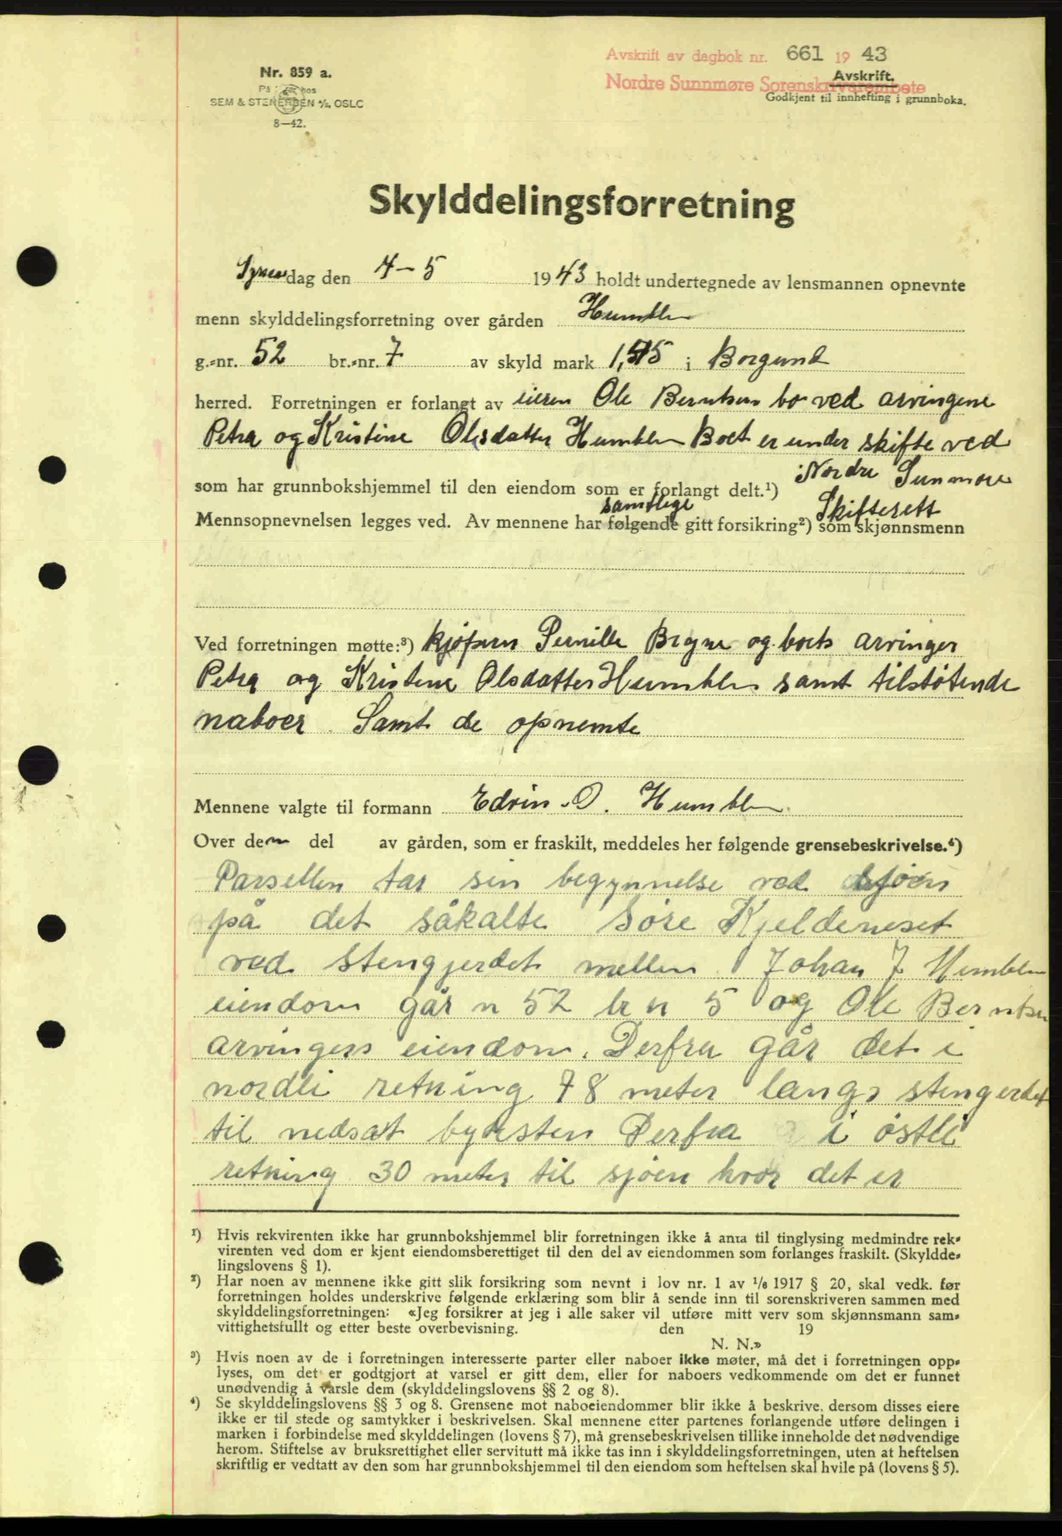 Avskrift av dagbok nr. 661 1943
Nordre Sunnmøre Sorenskriverembete
Avskrift.
Godkjent til innhefting i grunnboka.
Nr. 859 a.
SEM & STENERSEN A/S, OSLO
8—42.
Skylddelingsforretning
dag den 4-5 1943 holdt undertegnede av lensmannen opnevnte
menn skylddelingsforretning over gården Humblen
g.-nr. 52 br.-nr. 7 av skyld mark 1,55 i Borgund
herred. Forretningen er forlangt av eieren Ole Berntsens bo ved arvingene
Petra og Kristine Olsdatter Humblen Boet er under skifte ved
Nordre Sunmøre
som har grunnbokshjemmel til den eiendom som er forlangt delt.¹)
Skifterett
samtlige
Mennsopnevnelsen legges ved. Av mennene har følgende gitt forsikring²) som skjønnsmenn
Ved forretningen møtte:³) kjøperen Pernille Bryne og boets arvinger
Petra og Kristine Olsdatter Humblen samt tilstøtende
naboer. Samt de opnemte
Mennene valgte til formann Edvin O. Humblen
Over den del av gården, som er fraskilt, meddeles her følgende grensebeskrivelse.⁴)
Parsellen tar sin begynnelse ved sjøen
på det såkalte Søre Kjeldeneset
ved stengjerdet mellem Johan J Humblen
eiendom går n 52 br n 5 og Ole Berntsen
arvingers eiendom. Derfra går det i
nordli retning 78 meter langs stengerdet
til nedsat bytesten Derfra i østli
retning 30 meter til sjøen hvor det er
¹) Hvis rekvirenten ikke har grunnbokshjemmel blir forretningen ikke å anta til tinglysing medmindre rek-
virenten ved dom er kjent eiendomsberettiget til den del av eiendommen som forlanges fraskilt. (Skyldde-
lingslovens § 1).
²) Har noen av mennene ikke gitt slik forsikring som nevnt i lov nr. 1 av 1/6 1917 § 20, skal vedk. før
forretningen holdes underskrive følgende erklæring som blir å sende inn til sorenskriveren sammen med
skylddelingsforretningen: «Jeg forsikrer at jeg i alle saker vil utføre mitt verv som skjønnsmann sam-
vittighetsfullt og etter beste overbevisning. den 19
N. N.»
³) Hvis noen av de i forretningen interesserte parter eller naboer ikke møter, må det i forretningen opp-
lyses, om det er godtgjort at varsel er gitt dem, eller for naboers vedkommende om det er funnet
unødvendig å varsle dem (skylddelingslovens §§ 2 og 8).
⁴) Se skylddelingslovens §§ 3 og 8. Grensene mot naboeiendommer blir ikke å beskrive, dersom disses eiere
ikke er til stede og samtykker i beskrivelsen. Skal mennene etter partenes forlangende utføre delingen i
marken i forbindelse med skylddelingen (lovens § 7), må grensebeskrivelsen tillike inneholde det nødvendige
herom. Stiftelse av bruksrettighet eller servitutt må ikke tas inn i skylddelingsforretningen, uten at heftelsen
skriftlig er vedtatt av den som har grunnbokshjemmel til den eiendom som heftelsen skal hvile på (lovens § 5).